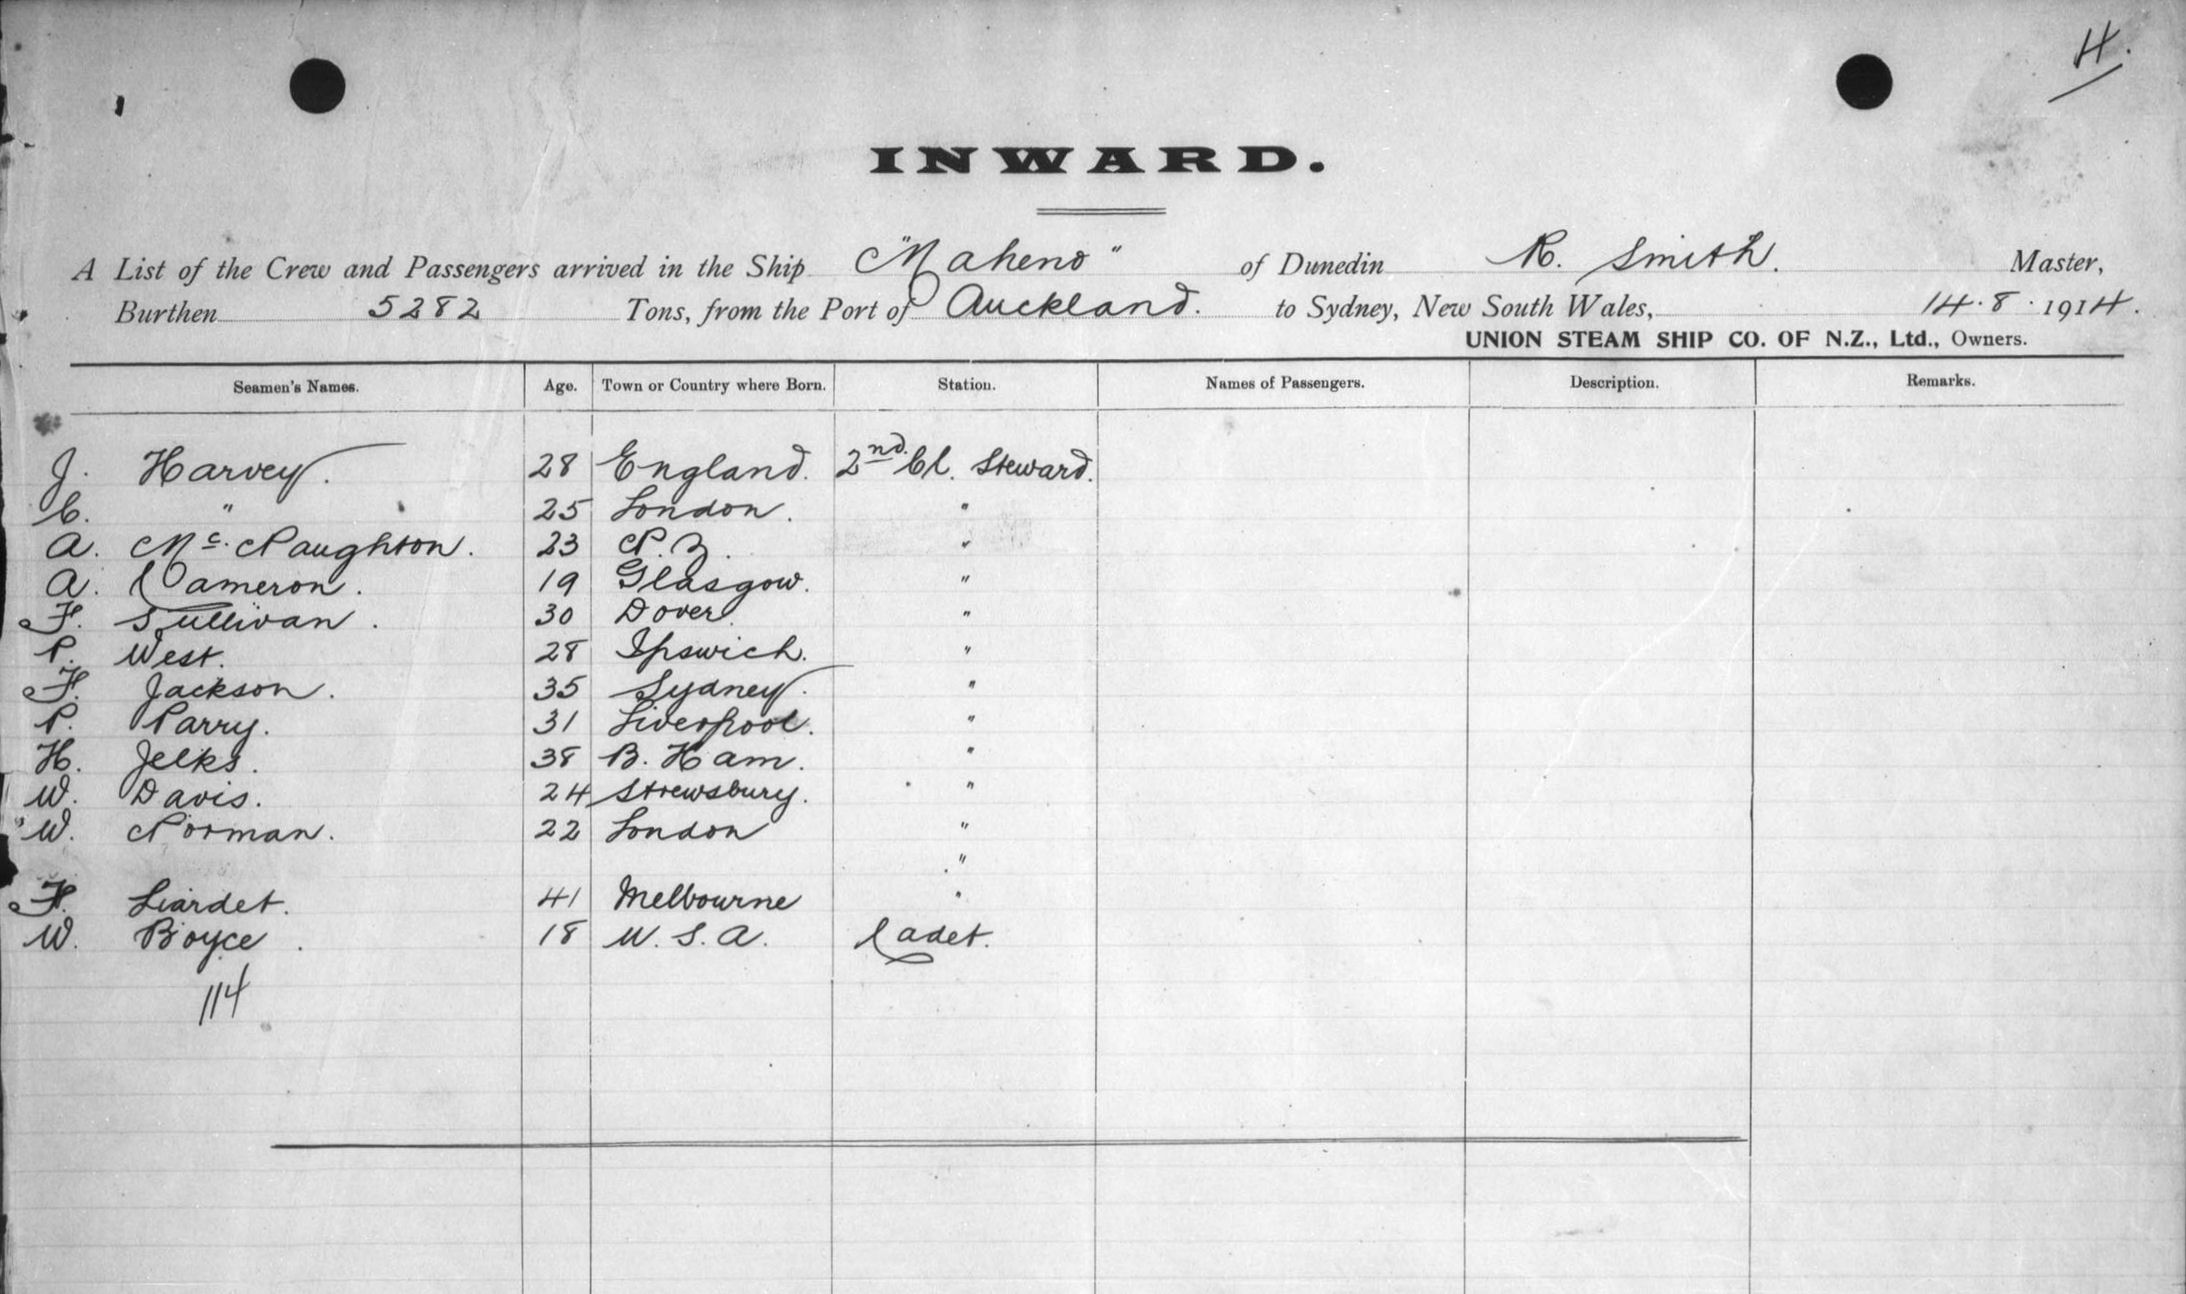 4.
INWARD.
A List of the Crew and Passengers arrived in the Ship "Maheno" of Dunedin R. Smith. Master,
Burthen 5282 Tons, from the Port of Auckland. to Sydney, New South Wales, 14.8.1914.
UNION STEAM SHIP CO. OF N.Z., Ltd., Owners.
Seamen's Names. Age. Town or Country where Born. Station. Names of Passengers. Description. Remarks.
J. Harvey. 28 England. 2nd Cl. Steward.
C. " 25 London. "
A. Mc. Naughton. 23 N.Z. "
A. Cameron. 19 Glasgow. "
F. Sullivan. 30 Dover. "
P. West. 28 Ipswich. "
F. Jackson. 35 Sydney. "
P. Parry. 31 Liverpool. "
H. Jelks. 38 B. Ham. "
W. Davis. 24 Strewsbury. "
W. Norman. 22 London "
"
F. Liardet. 41 Melbourne "
W. Boyce. 18 U.S.A. Cadet.
114